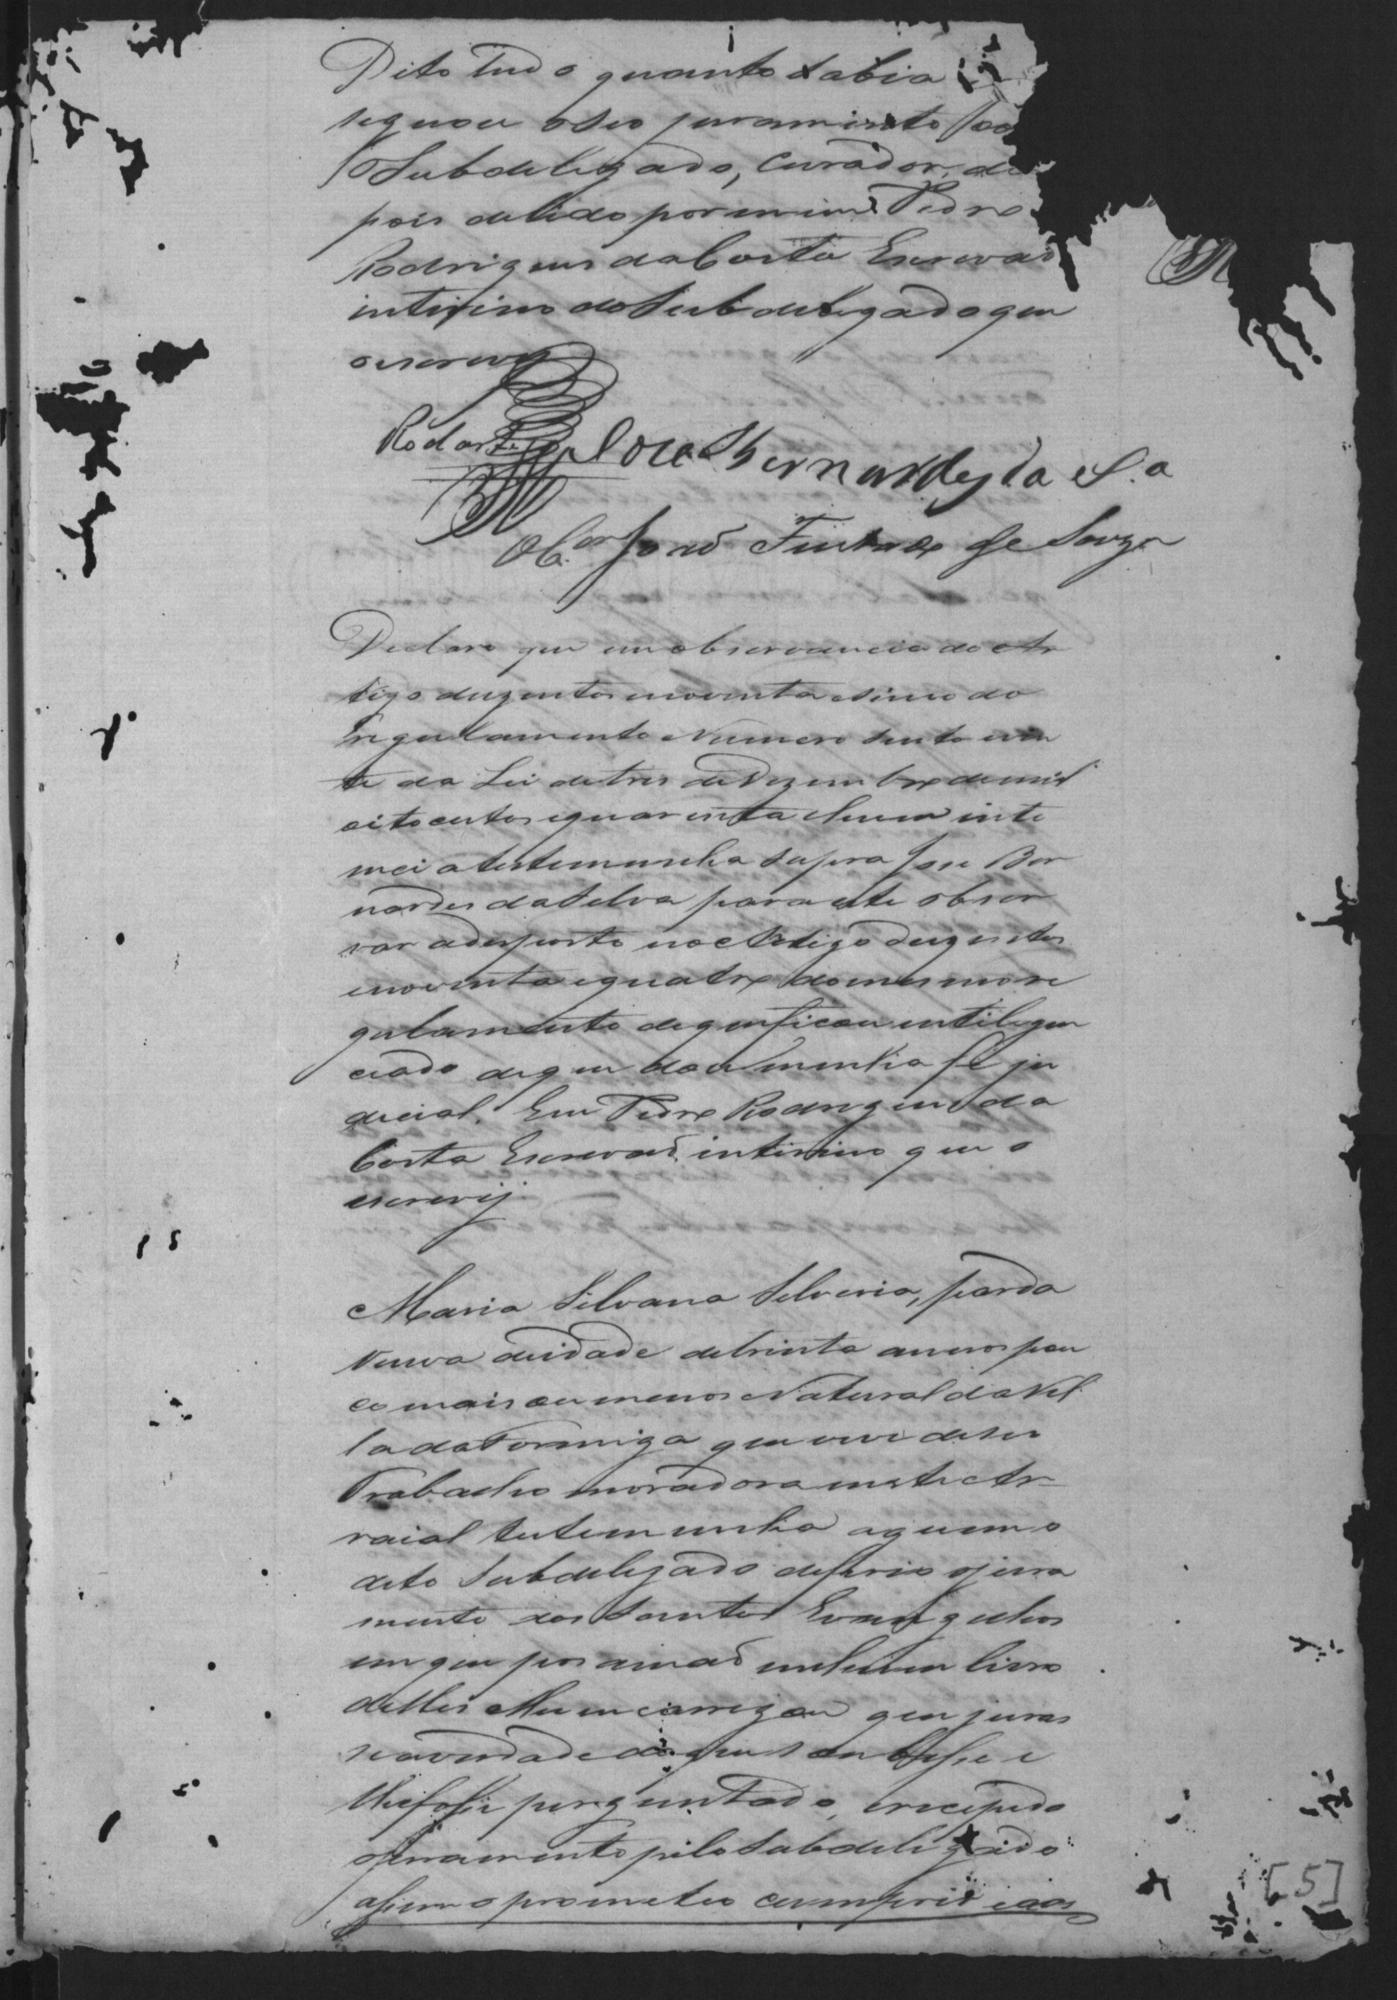 Dito tudo quanto sabia
signou o seo juramento
O Subdelegado, Curador, de
pois de lido por mim Pedro
Rodrigues da Costa Escrevaõ
interino do Subdelegado que
oescrevy
Rodarte José Bernardes da S.a
O C.dor Joaõ Furtado de Souza
Declaro que em observancia do Ar
tigo duzentos enoventa esinco do
regulamento Numero sento evin
te da Lei de tres de Dezembro demil
oitocentos equarenta ehum inte
mei atestemunha supra Jose Ber
nardes da Selva para este obser
var adesposto no Artigo duzentos
enoventa equatro domesmo re
gulamento dequeficou entiligen
ciado deque dou minha fé ju
decial. Eu Pedro Rodrigues da
Costa Escrevaõ interino que o
escrevij
Maria Silvana Selveria, parda
Veuva deidade detrinta annos pou
co mais ou menos Natural da Vil
la da Formiga que vive de seo
Trabalho moradora neste Ar
raial testemunha aquem o
dito Subdelegado deferio ojura
mento dos Santos Evangelhos
em que pos amaõ em hum livro
delles elhe encarregou que juras
se averdade do que soubesse e
lhe fosse perguntado, erecebido
ojuramento pelo Subdelegado
assim oprometeo cumprir eaos
[5]